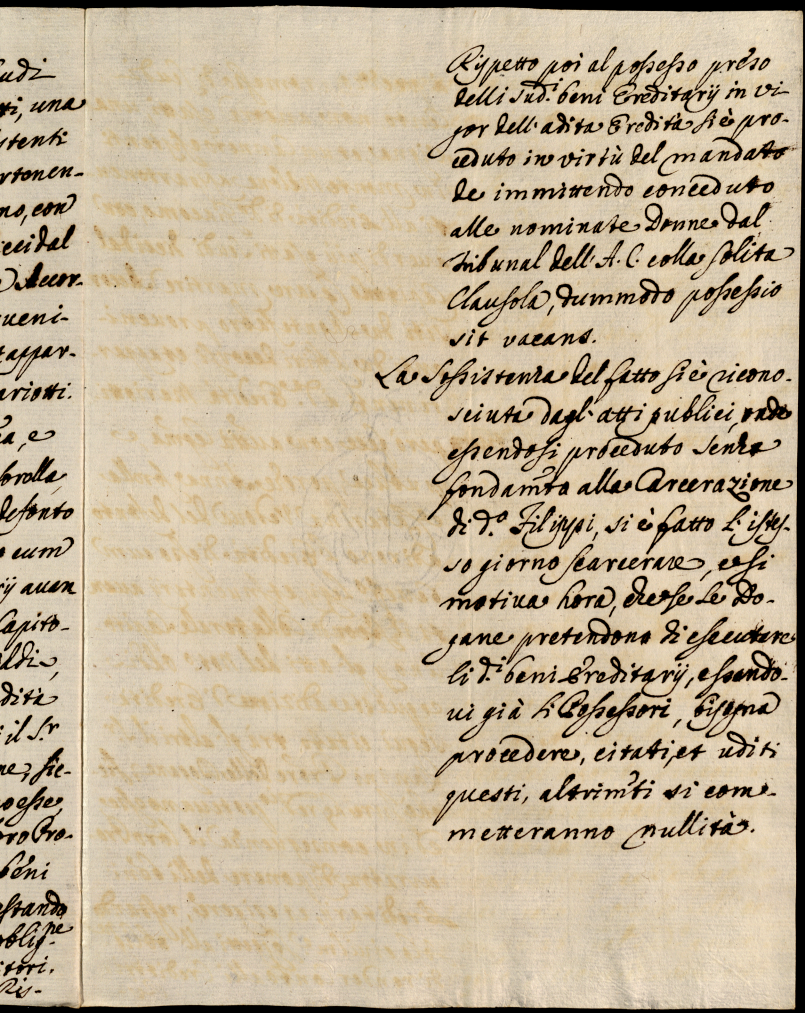 udi
ti, una
stenti
rtenen-
no, con
ccidal
Accor-
ueni-
t appar-
ariotti.
a, e
brolla
defonto
o cum
ij auan
Capito-
aldi,
dità
il S.r
ne, sic-
o esse
oro Pro-
beni
estando
oblig.ne
itori.
Ris-
Rispetto poi al possesso preso
delli sud.i beni Ereditarij in vi
gor dell'adita Eredità si è pro-
ceduto in virtù del mandato
de immittendo conceduto
alle nominate Donne dal
Tribunal dell'A. C. colla solita
Clausola, dummodo possessio
sit vacans.
La Sossistenza del fatto si è ricono-
sciuta dagl'atti publici, onde
essendosi proceduto senza
fondam.to alla Carcerazione
di d.o Filippi, si è fatto l'istes-
so giorno scarcerare, e si
motiua hora, che se le Do-
gane pretendono di esecutare
li d.i beni Ereditarij, essendo-
ui già li Possessori, bisogna
procedere, citati, et uditi
questi, altrim.ti si com-
metteranno nullità.